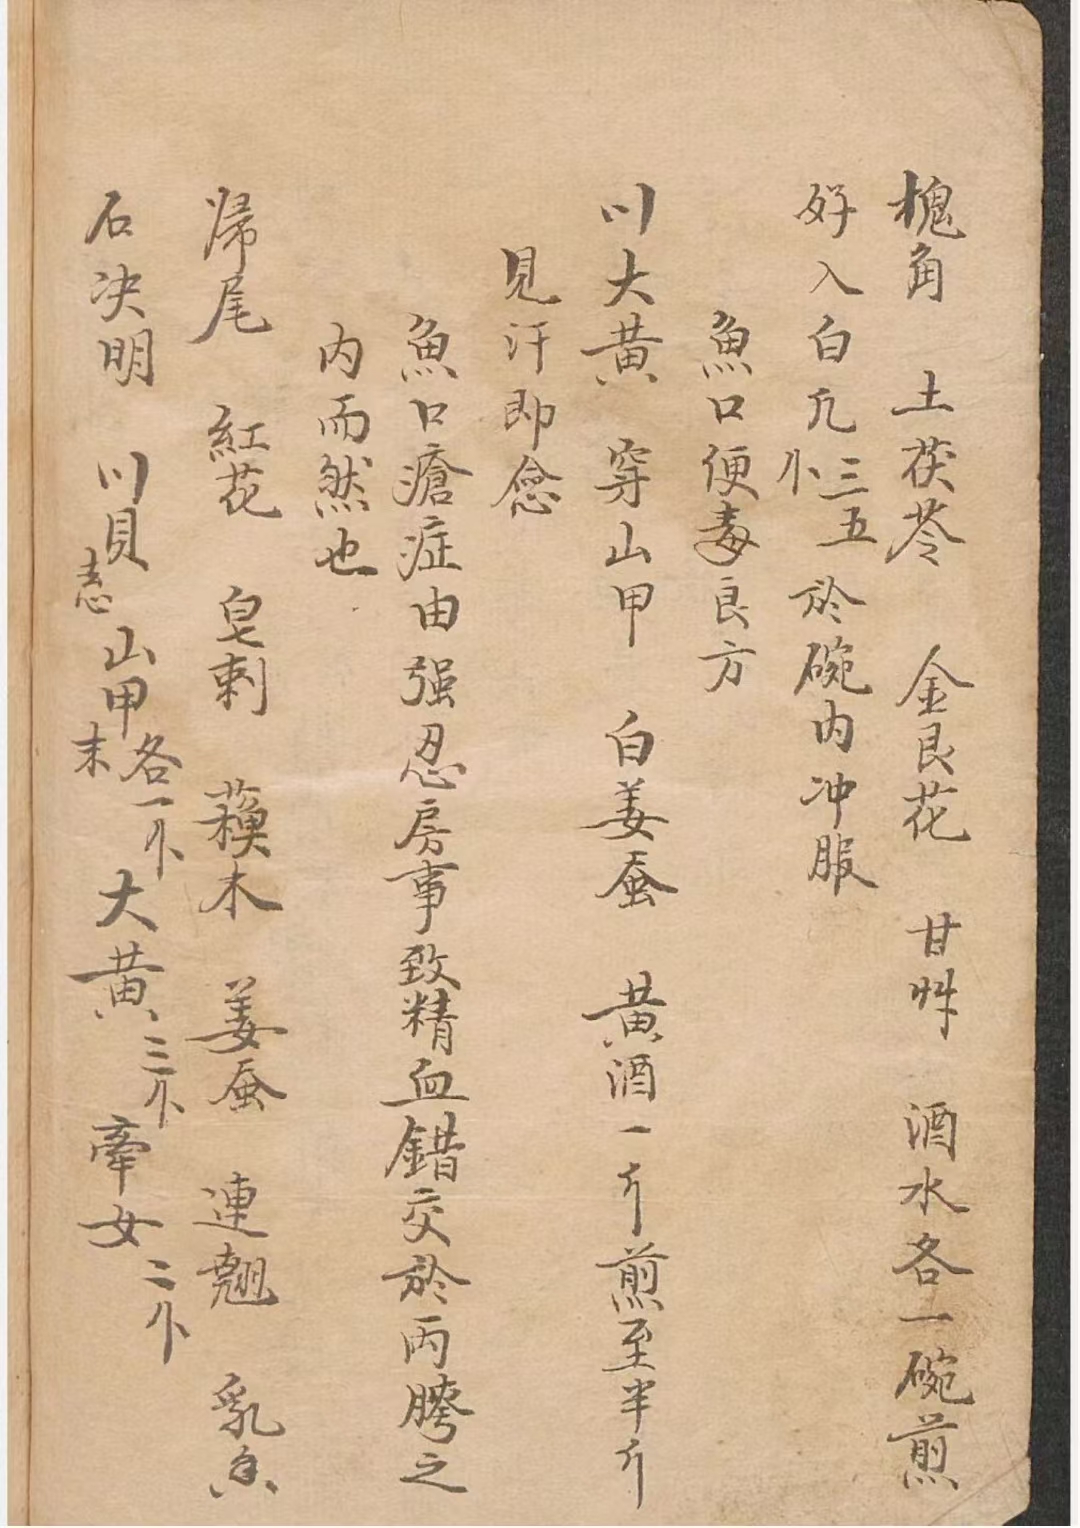 槐角 土茯苓 金艮花 甘艸 酒水各一碗煎
好入白凡三五小於碗内冲服
魚口便毒良方
川大黄 穿山甲 白姜蚕 黄酒一斤煎至半斤
見汗即愈
魚口瘡症由强忍房事致精血錯交於両胯之
内而然也
帰尾 紅花 皂刺 蘓木 姜蚕 連翹 乳香
石决明 川貝 山甲末各一卜 大黄三卜 牵女二卜